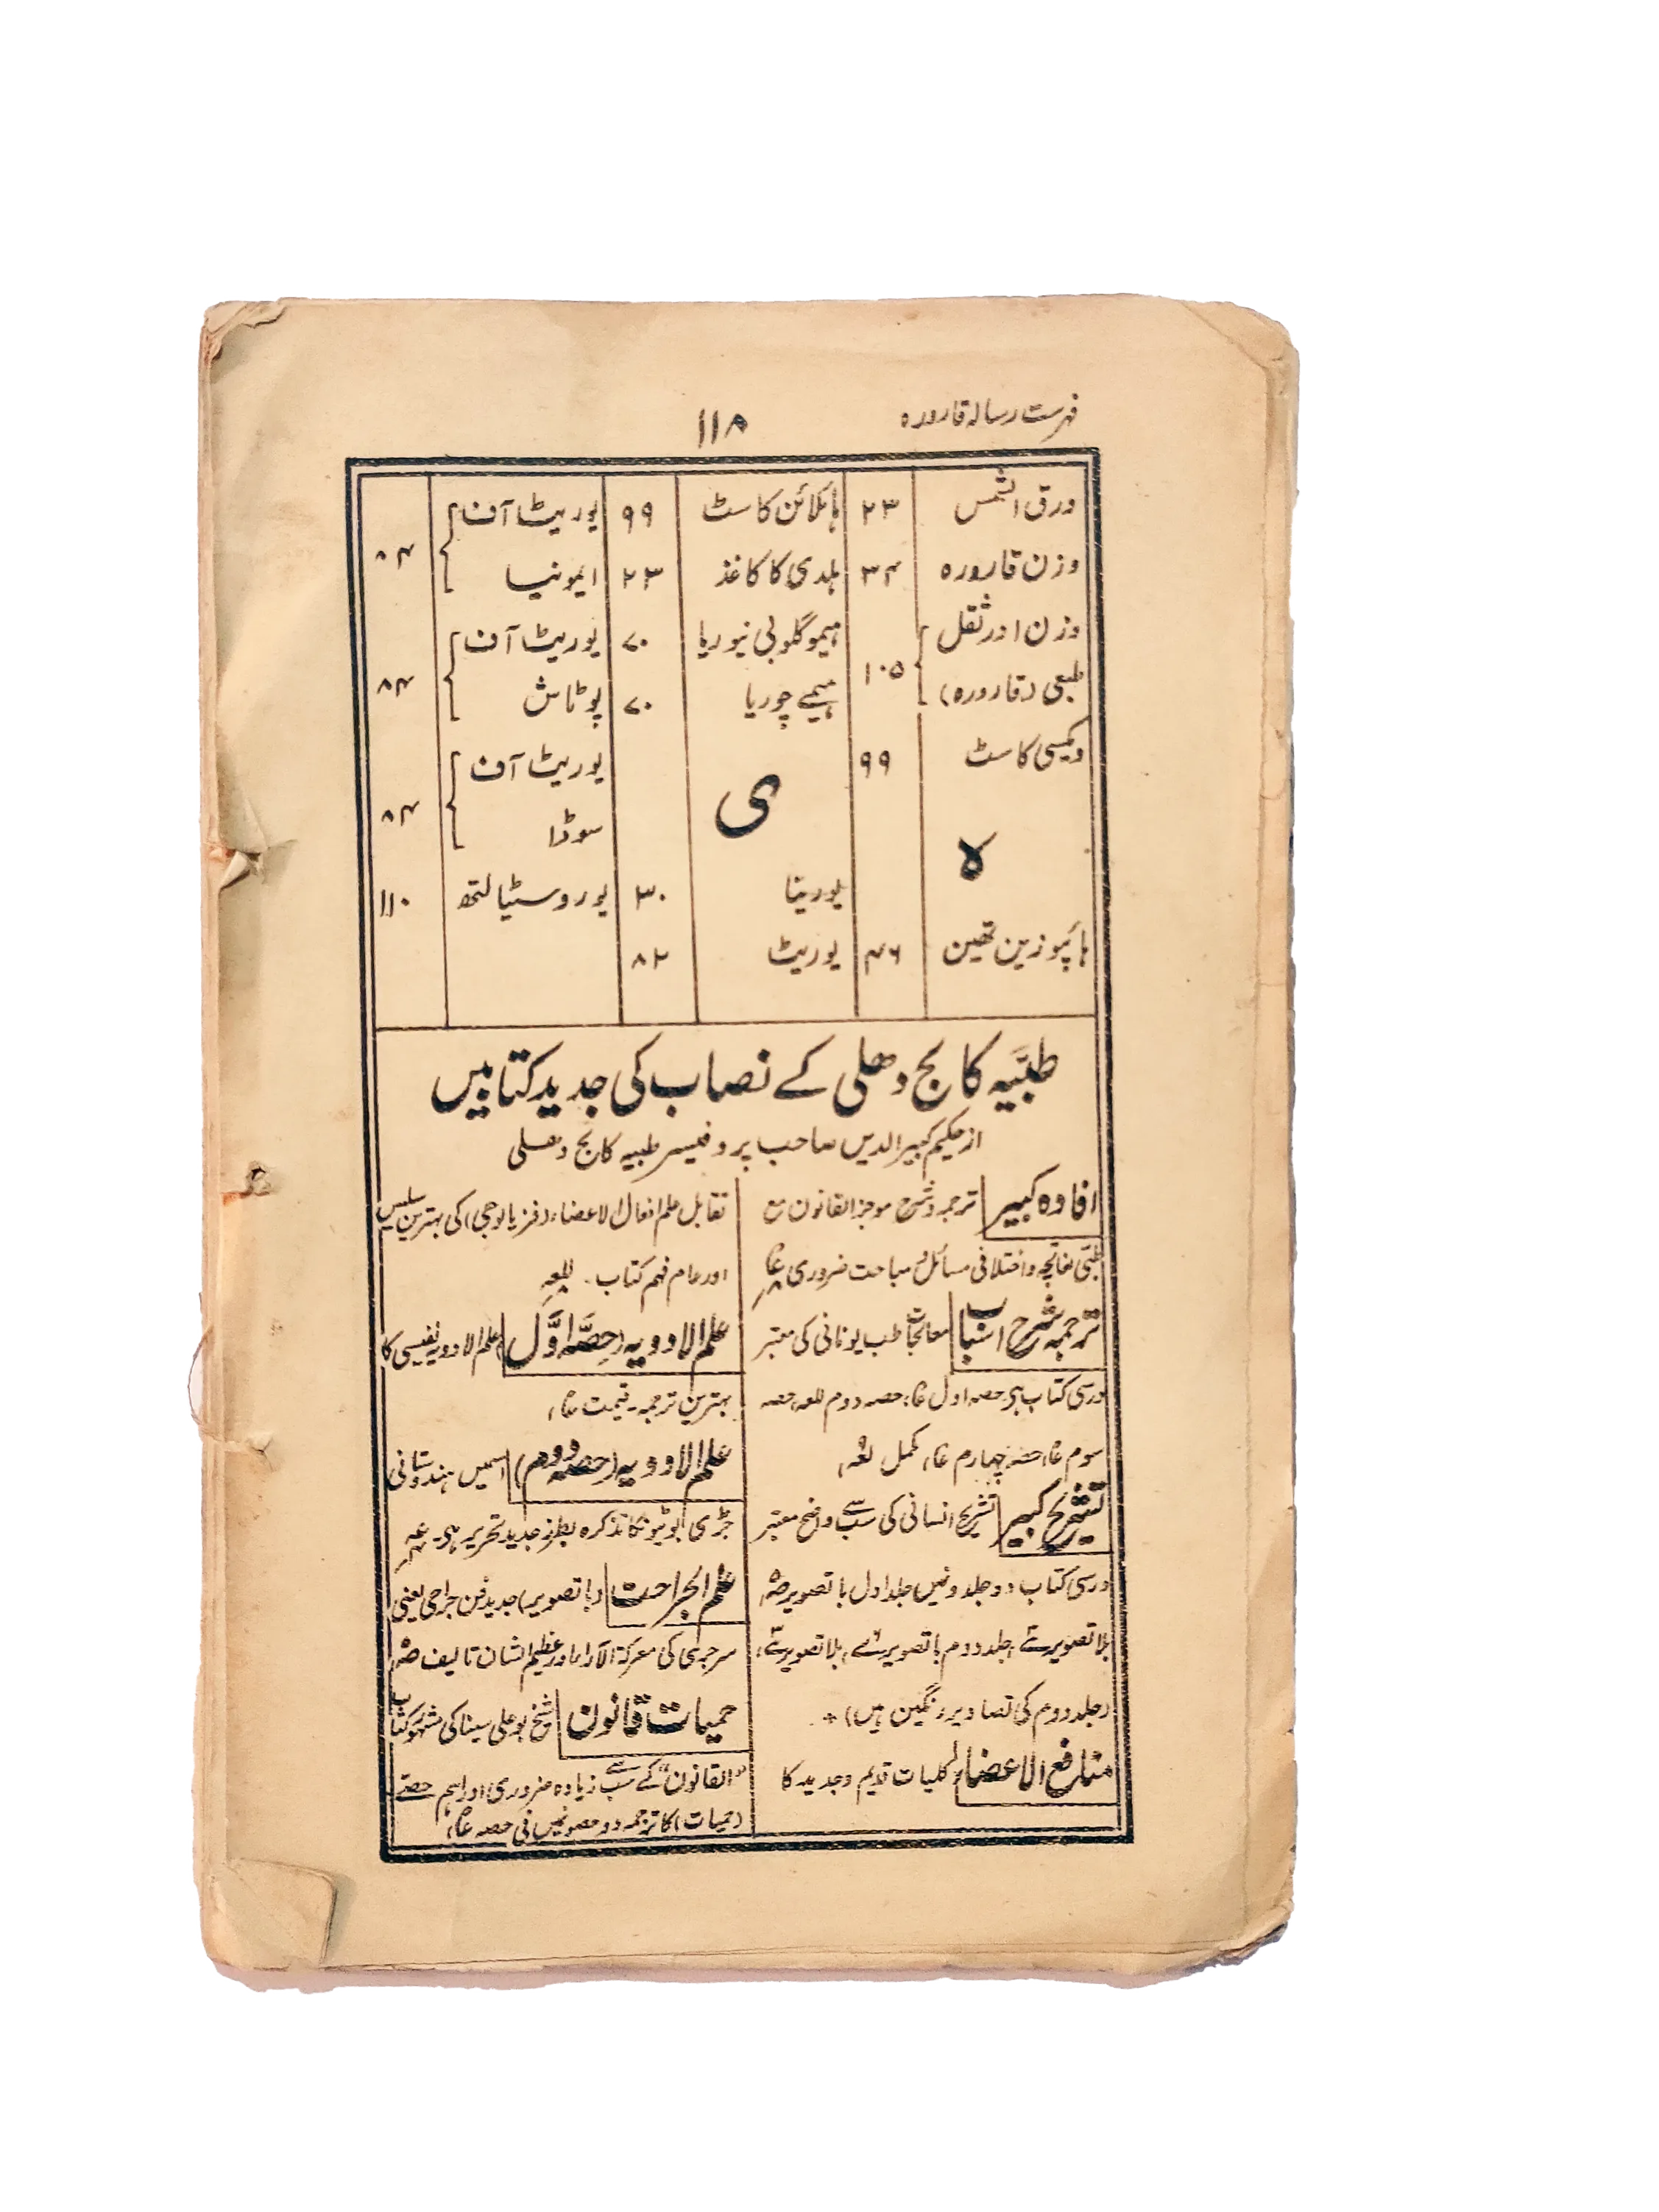 فہرست رسالہ قارورہ
۱۱۸
ورق الشمس ۲۳
وزن قارورہ ۳۴
وزن اور ثقل
طبعی (قارورہ) ۱۰۵
ویکسی کاسٹ ۹۹
ہ
ہائپوزین تھین ۴۶
ہائلائن کاسٹ ۹۹
ہلدی کا کاغذ ۲۳
ہیموگلوبی نیوریا ۷۰
ہیمے چوریا ۷۰
ی
یورینا ۳۰
یوریٹ ۸۲
یوریٹ آف
ایمونیا ۸۴
یوریٹ آف
پوٹاش ۸۴
یوریٹ آف
سوڈا ۸۴
یوروسٹیالتھ ۱۱۰
طبّیہ کالج دھلی کے نصاب کی جدید کتابیں
از حکیم کبیر الدین صاحب پروفیسر طبیہ کالج دھلی
افادہ کبیر ترجمہ و شرح موجز القانون مع
طبی و اختلافی مسائل و مباحث ضروری
ترجمہ شرح اسباب معالجات طب یونانی کی معتبر
درسی کتاب ہی حصہ اول حصہ دوم حصہ
سوم حصہ چہارم مکمل
تشریح کبیر تشریح انسانی کی سب سے واضح معتبر
درسی کتاب دو جلدونمیں جلد اول با تصویر
بلا تصویر جلد دوم با تصویر بلا تصویر
(جلد دوم کی تصاویر رنگین ہیں)*
منافع الاعضاء کلیات قدیم و جدید کا
تقابل علم افعال الاعضاء (فزیالوجی) کی بہترین سلیس
اور عام فہم کتاب۔
علم الادویہ (حصّہ اوّل) علم الادویہ نفیسی کا
بہترین ترجمہ۔ قیمت
علم الادویہ (حصہ دوم) اسمیں ہندوستانی
جڑی بوٹیونکا تذکرہ بطرز جدید تحریر ہی۔
علم الجراحت (با تصویر) جدید فن جراحی یعنی
سرجری کی معرکۃ الآرا اور عظیم الشان تالیف
حمیات قانون شیخ بو علی سینا کی مشہور کتاب
"القانون" کے سب سے زیادہ ضروری اور اہم حصے
(حمیات) کا ترجمہ دو حصونمیں فی حصہ